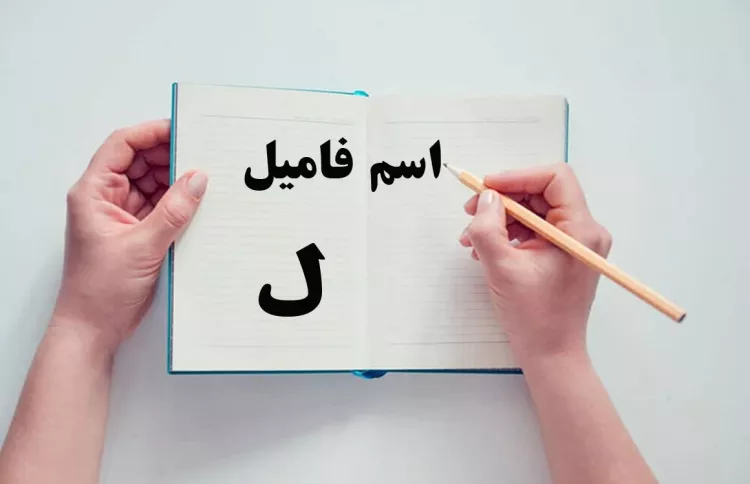 اسم فامیل
ل